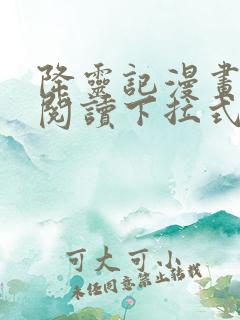 降靈記漫畫
閱讀下拉式
可大可小
未經同意禁止轉載